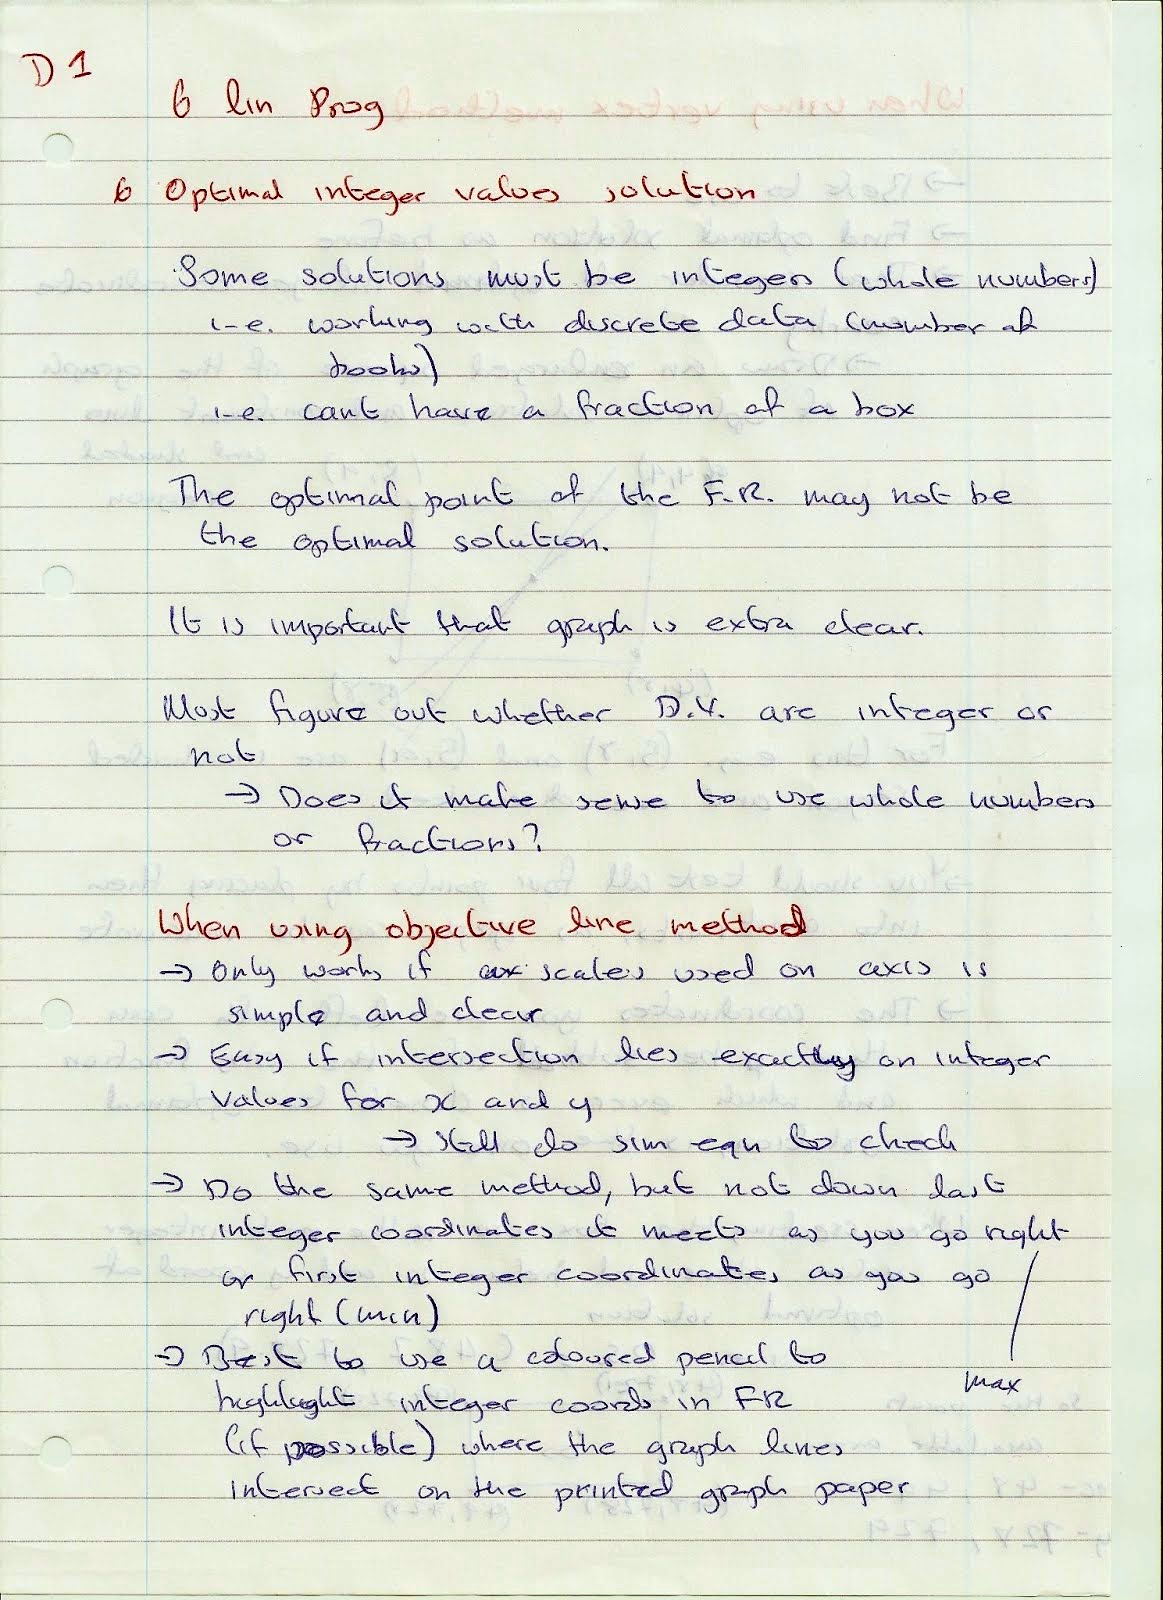 D1
6 lin Prog
6 Optimal integer values solution
Some solutions must be integers (whole numbers)
i-e. working with discrete data (number of
books)
i-e. cant have a fraction of a box
The optimal point of the F.R. may not be
the optimal solution.
It is important that graph is extra clear.
Must figure out whether D.V. are integer or
not
→ Does it make sense to use whole numbers
or fractions?
When using objective line method
→ Only works if scales used on axis is
simple and clear
→ Easy if intersection lies exactly on integer
values for x and y
→ still do sim eqn to check
→ Do the same method, but not down last
integer coordinates it meets as you go right
or first integer coordinates as you go
right (min)
max
→ Best to use a coloured pencil to
highlight integer coords in FR
(if possible) where the graph lines
intersect on the printed graph paper